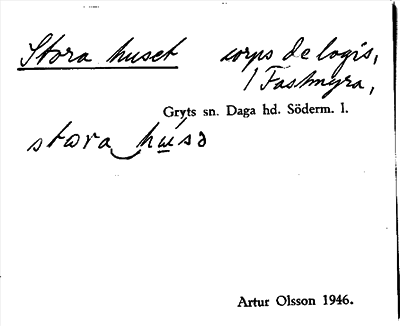 Stora huset corps de logis,
/ Fastmyra,
Gryts sn. Daga hd. Söderm. l.
stωra hʉ́sə
Artur Olsson 1946.